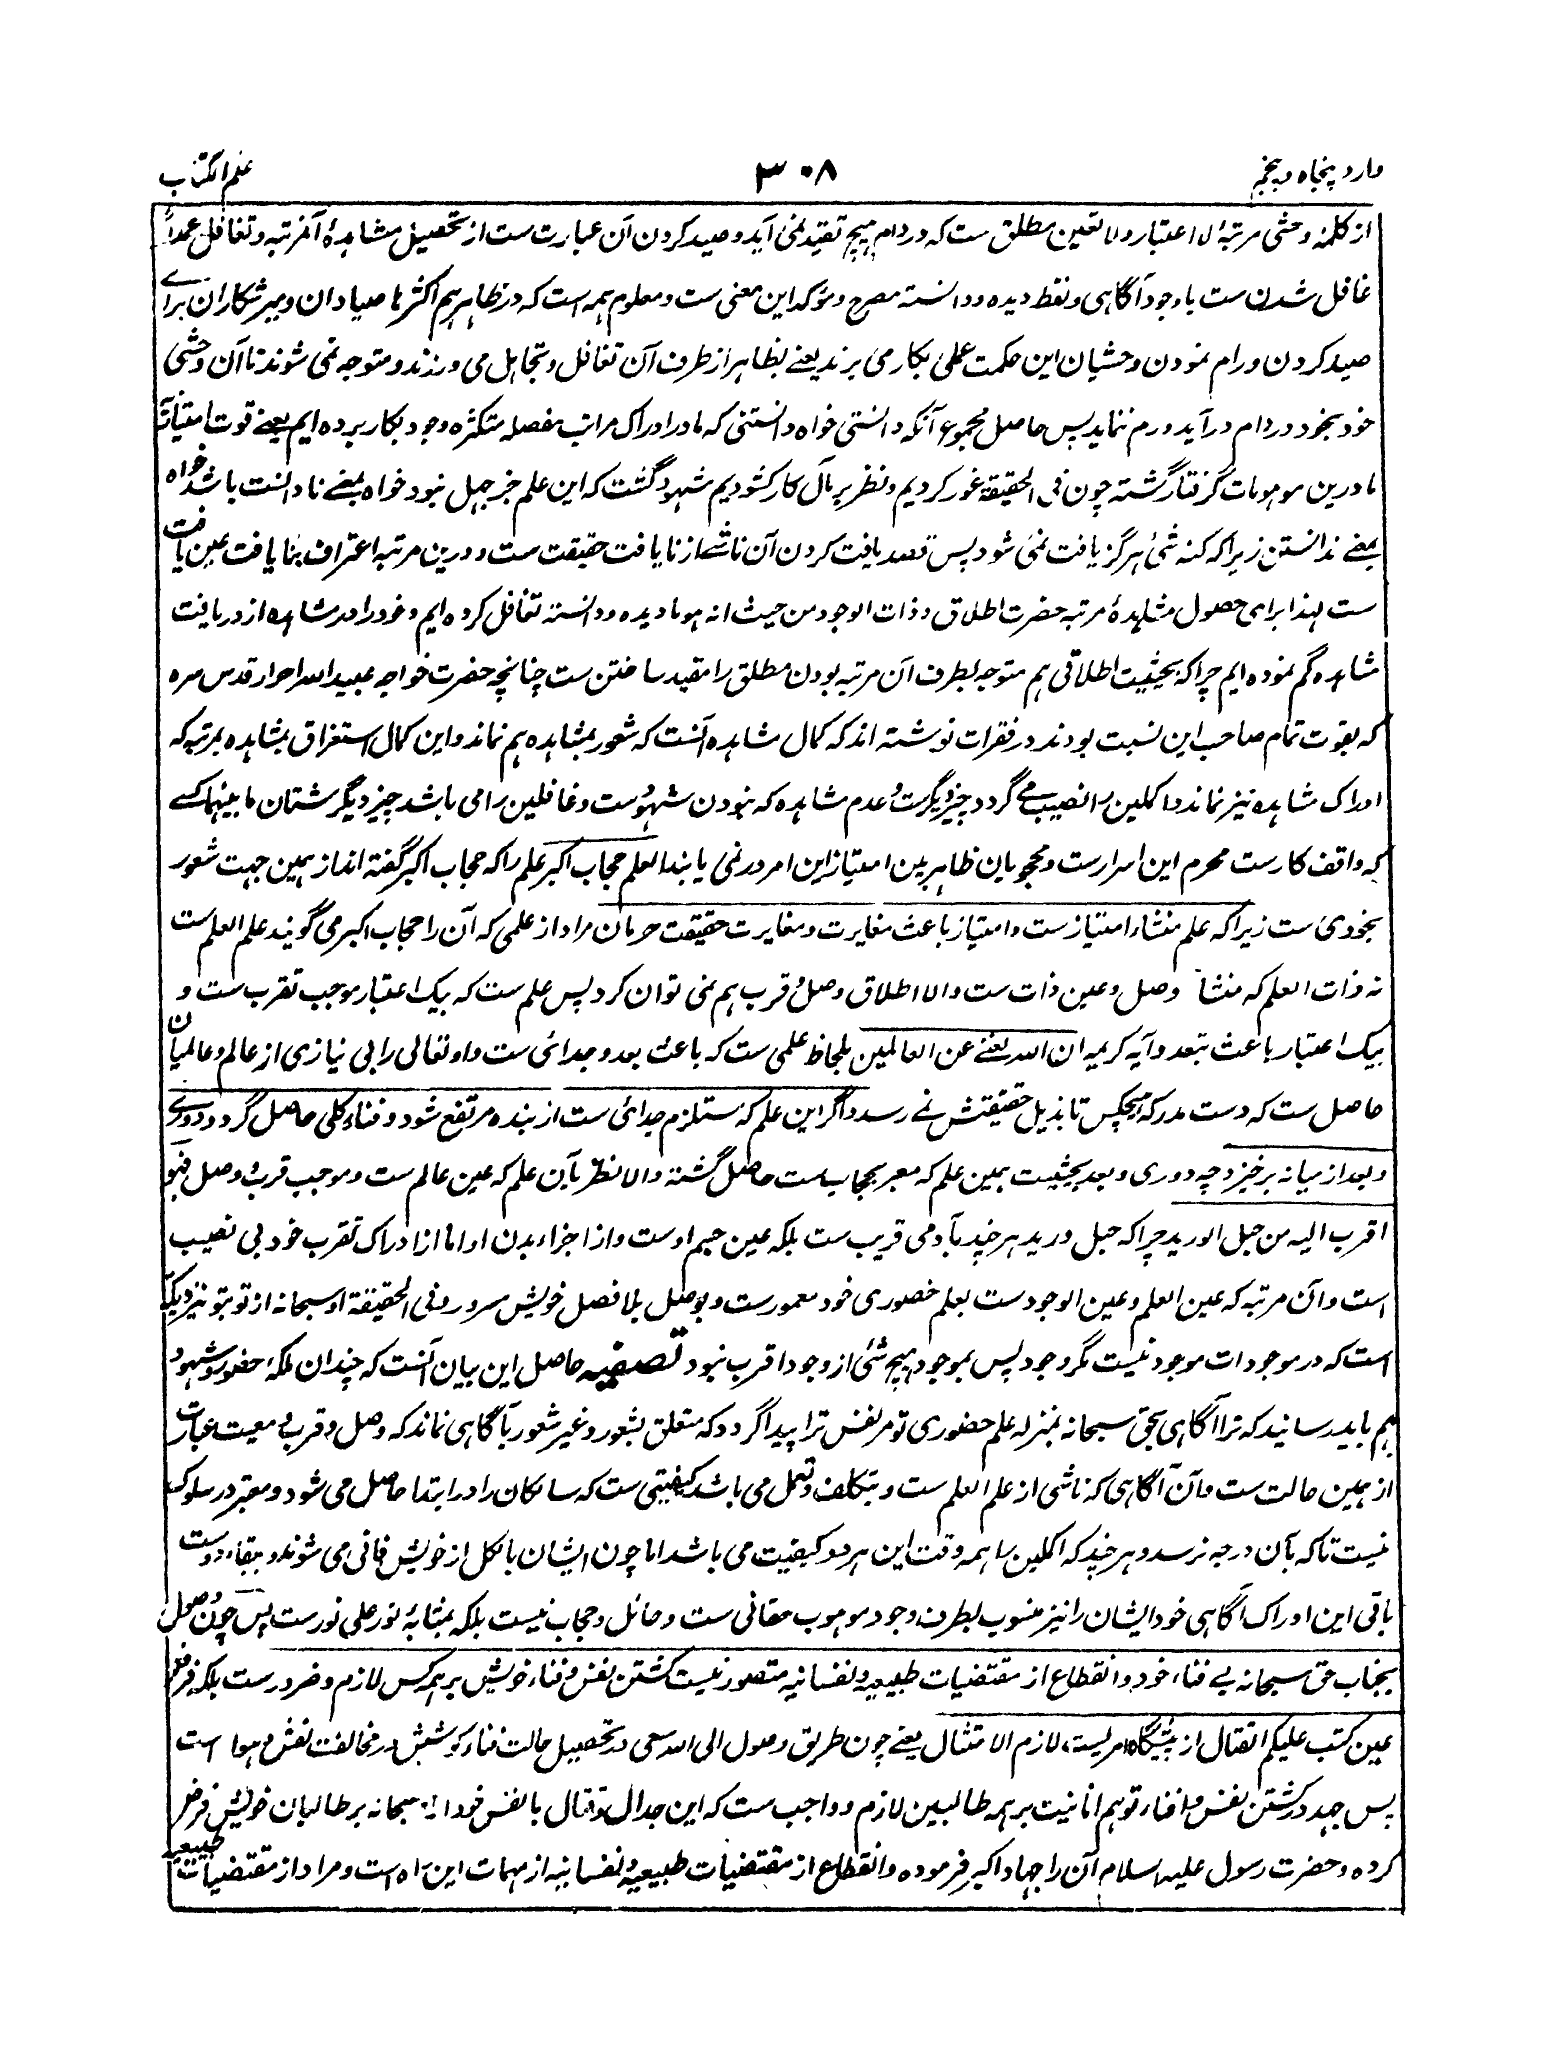 وارد پنجاه و پنجم ۳۰۸ علم الکتاب
از کلمهٔ وحشی مرتبهٔ لا اعتبار ولا تعین مطلق ست که در دام هیچ تقید نمی آید و صید کردن آن عبارت ست از تحصیل مشاهدهٔ آنمرتبه و تغافل عمداً
غافل شدن ست باوجود آگاهی و لفظ دیده و دانسته مصرح و مؤکد این معنی ست و معلوم همه است که در ظاهر هم اکثرها صیادان و میر شکاران برای
صید کردن و رام نمودن وحشیان این حکمت عملی بکار می برند یعنی بظاهر از طرف آن تغافل و تجاهل می ورزند و متوجه نمی شوند تا آن وحشی
خود بخود در دام در آید و رم ننماید پس حاصل مجموع آنکه دانستی خواه دانستنی که ما در ادراک مراتب مفصله متکثره وجود بکار برده ایم یعنی قوت امتیاز
ما درین موهومات گرفتار گشته چون فی الحقیقة غور کردیم و نظر بر مآل کار کشودیم مشهود گشت که این علم جز جهل نبود خواه بمعنی نادانست باشد خواه
بمعنی ندانستن زیرا که کنه شئ هرگز یافت نمی شود پس قصد یافت کردن آن ناشی از نایافت حقیقت ست و درین مرتبه اعتراف بنایافت عین یافت
ست لهذا برای حصول مشاهدهٔ مرتبه حضرت اطلاق و ذات الوجود من حیث انه هو ما دیده و دانسته تغافل کرده ایم و خود را در مشاهده از دریافت
مشاهده گم نموده ایم چرا که بحیثیت اطلاقی هم متوجه بطرف آن مرتبه بودن مطلق را مقید ساختن ست چنانچه حضرت خواجه عبید الله احرار قدس سره
که بقوت تمام صاحب این نسبت بودند در فقرات نوشته اند که کمال مشاهده آنست که شعور بمشاهده هم نماند و این کمال استغراق بمشاهده بمرتبه که
ادراک مشاهده نیز نماند و اکملین را نصیب می گردد چیز دیگرست و عدم مشاهده که نبودن شهودست و غافلین را می باشد چیز دیگر شتان ما بینهما کسی
که واقف کارست محرم این اسرارست و محجوبان ظاهر بین امتیاز این امر در نمی یابند العلم حجاب اکبر علم را که حجاب اکبر گفته اند از همین جهت شعور
بخودی ست زیرا که علم منشاء امتیاز ست و امتیاز باعث مغایرت و مغایرت حقیقت حرمان مراد از علمی که آن را حجاب اکبر می گویند علم العلم ست
نه ذات العلم که منشأ وصل و عین ذات ست والا اطلاق وصل و قرب هم نمی توان کرد پس علم ست که بیک اعتبار موجب تقرب ست و
بیک اعتبار باعث تبعد و آیه کریمه ان الله لغنی عن العالمین بلحاظ علمی ست که باعث بعد و جدائی ست و او تعالی را بی نیازی از عالم و عالمیان
حاصل ست که دست مدرکه هیچکس تا بذیل حقیقتش نمی رسد و اگر این علم که مستلزم جدائی ست از بنده مرتفع شود و فناء کلی حاصل گردد دوری
و بعد از میانه برخیزد چه دوری و بعد بحیثیت همین علم که معبر بحجاب ست حاصل گشته والا نظر بآن علم که عین عالم ست و موجب قرب و وصل فهو
اقرب الیه من حبل الورید چرا که حبل ورید هر چند بآدمی قریب ست بلکه عین جسم اوست و از اجزاء بدن او اما از ادراک تقرب خود بی نصیب
است و آن مرتبه که عین العلم و عین الوجود ست بعلم حضوری خود معمورست و بوصل بلا فصل خویش مسرور و فی الحقیقة او سبحانه از تو بتو نیز نزدیک
است که در موجودات موجود نیست مگر وجود پس بموجود هیچ شئ از وجود اقرب نبود تصفیه حاصل این بیان آنست که چندان ملکهٔ حضور و شهود
بهم باید رسانید که ترا آگاهی بحق سبحانه بمنزله علم حضوری تو مر نفس ترا پیدا گردد که متعلق بشعور و غیر شعور بآگاهی نماند که وصل و قرب و معیت عبارت
از همین حالت ست و آن آگاهی که ناشی از علم العلم ست و بتکلف و تعمل می باشد کیفیتی ست که سالکان را در ابتدا حاصل می شود و معتبر در سلوک
نیست تا که بآن درجه نرسد و هر چند که اکملین را همه وقت این هر دو کیفیت می باشد اما چون ایشان بالکل از خویش فانی می شوند و ببقاء دوست
باقی این ادراک آگاهی خود ایشان را نیز منسوب بطرف وجود موهوب حقانی ست و حائل و حجاب نیست بلکه بمثابهٔ نور علی نورست پس چون وصول
بجناب حق سبحانه بی فناء خود و انقطاع از مقتضیات طبیعیه و نفسانیه متصور نیست کشتن نفس و فناء خویش بر هر کس لازم و ضرورست بلکه فرض
عین کتب علیکم القتال از پیشگاه امریست لازم الامتثال یعنی چون طریق وصول الی الله سعی در تحصیل حالت فناء و کوشش در مخالفت نفس و هوا است
پس جهد در کشتن نفس و افناء توهم انانیت بر همه طالبین لازم و واجب ست که این جدال و قتال با نفس خود الله سبحانه بر طالبان خویش فرض
کرده و حضرت رسول علیه السلام آن را جهاد اکبر فرموده و انقطاع از مقتضیات طبیعیه و نفسانیه از مهمات این راه است و مراد از مقتضیات طبیعیه